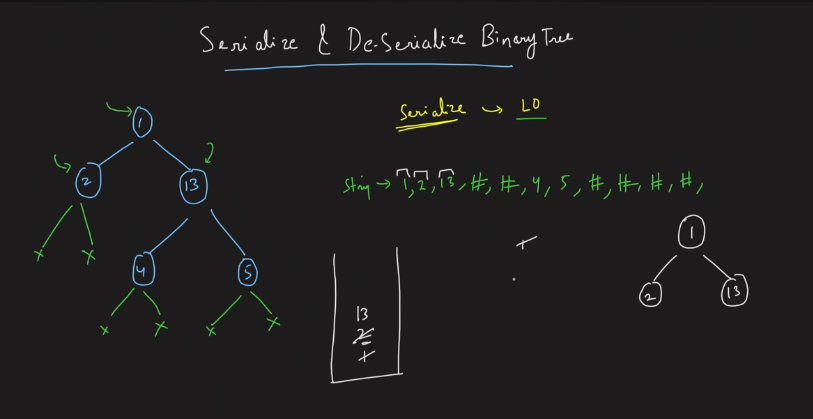 Serialize & De-Serialize Binary Tree
Serialize → LO
1
String → 1, 2, 13, #, #, 4, 5, #, #, #, #,
2
13
1
4
5
2
13
13
2
1
1